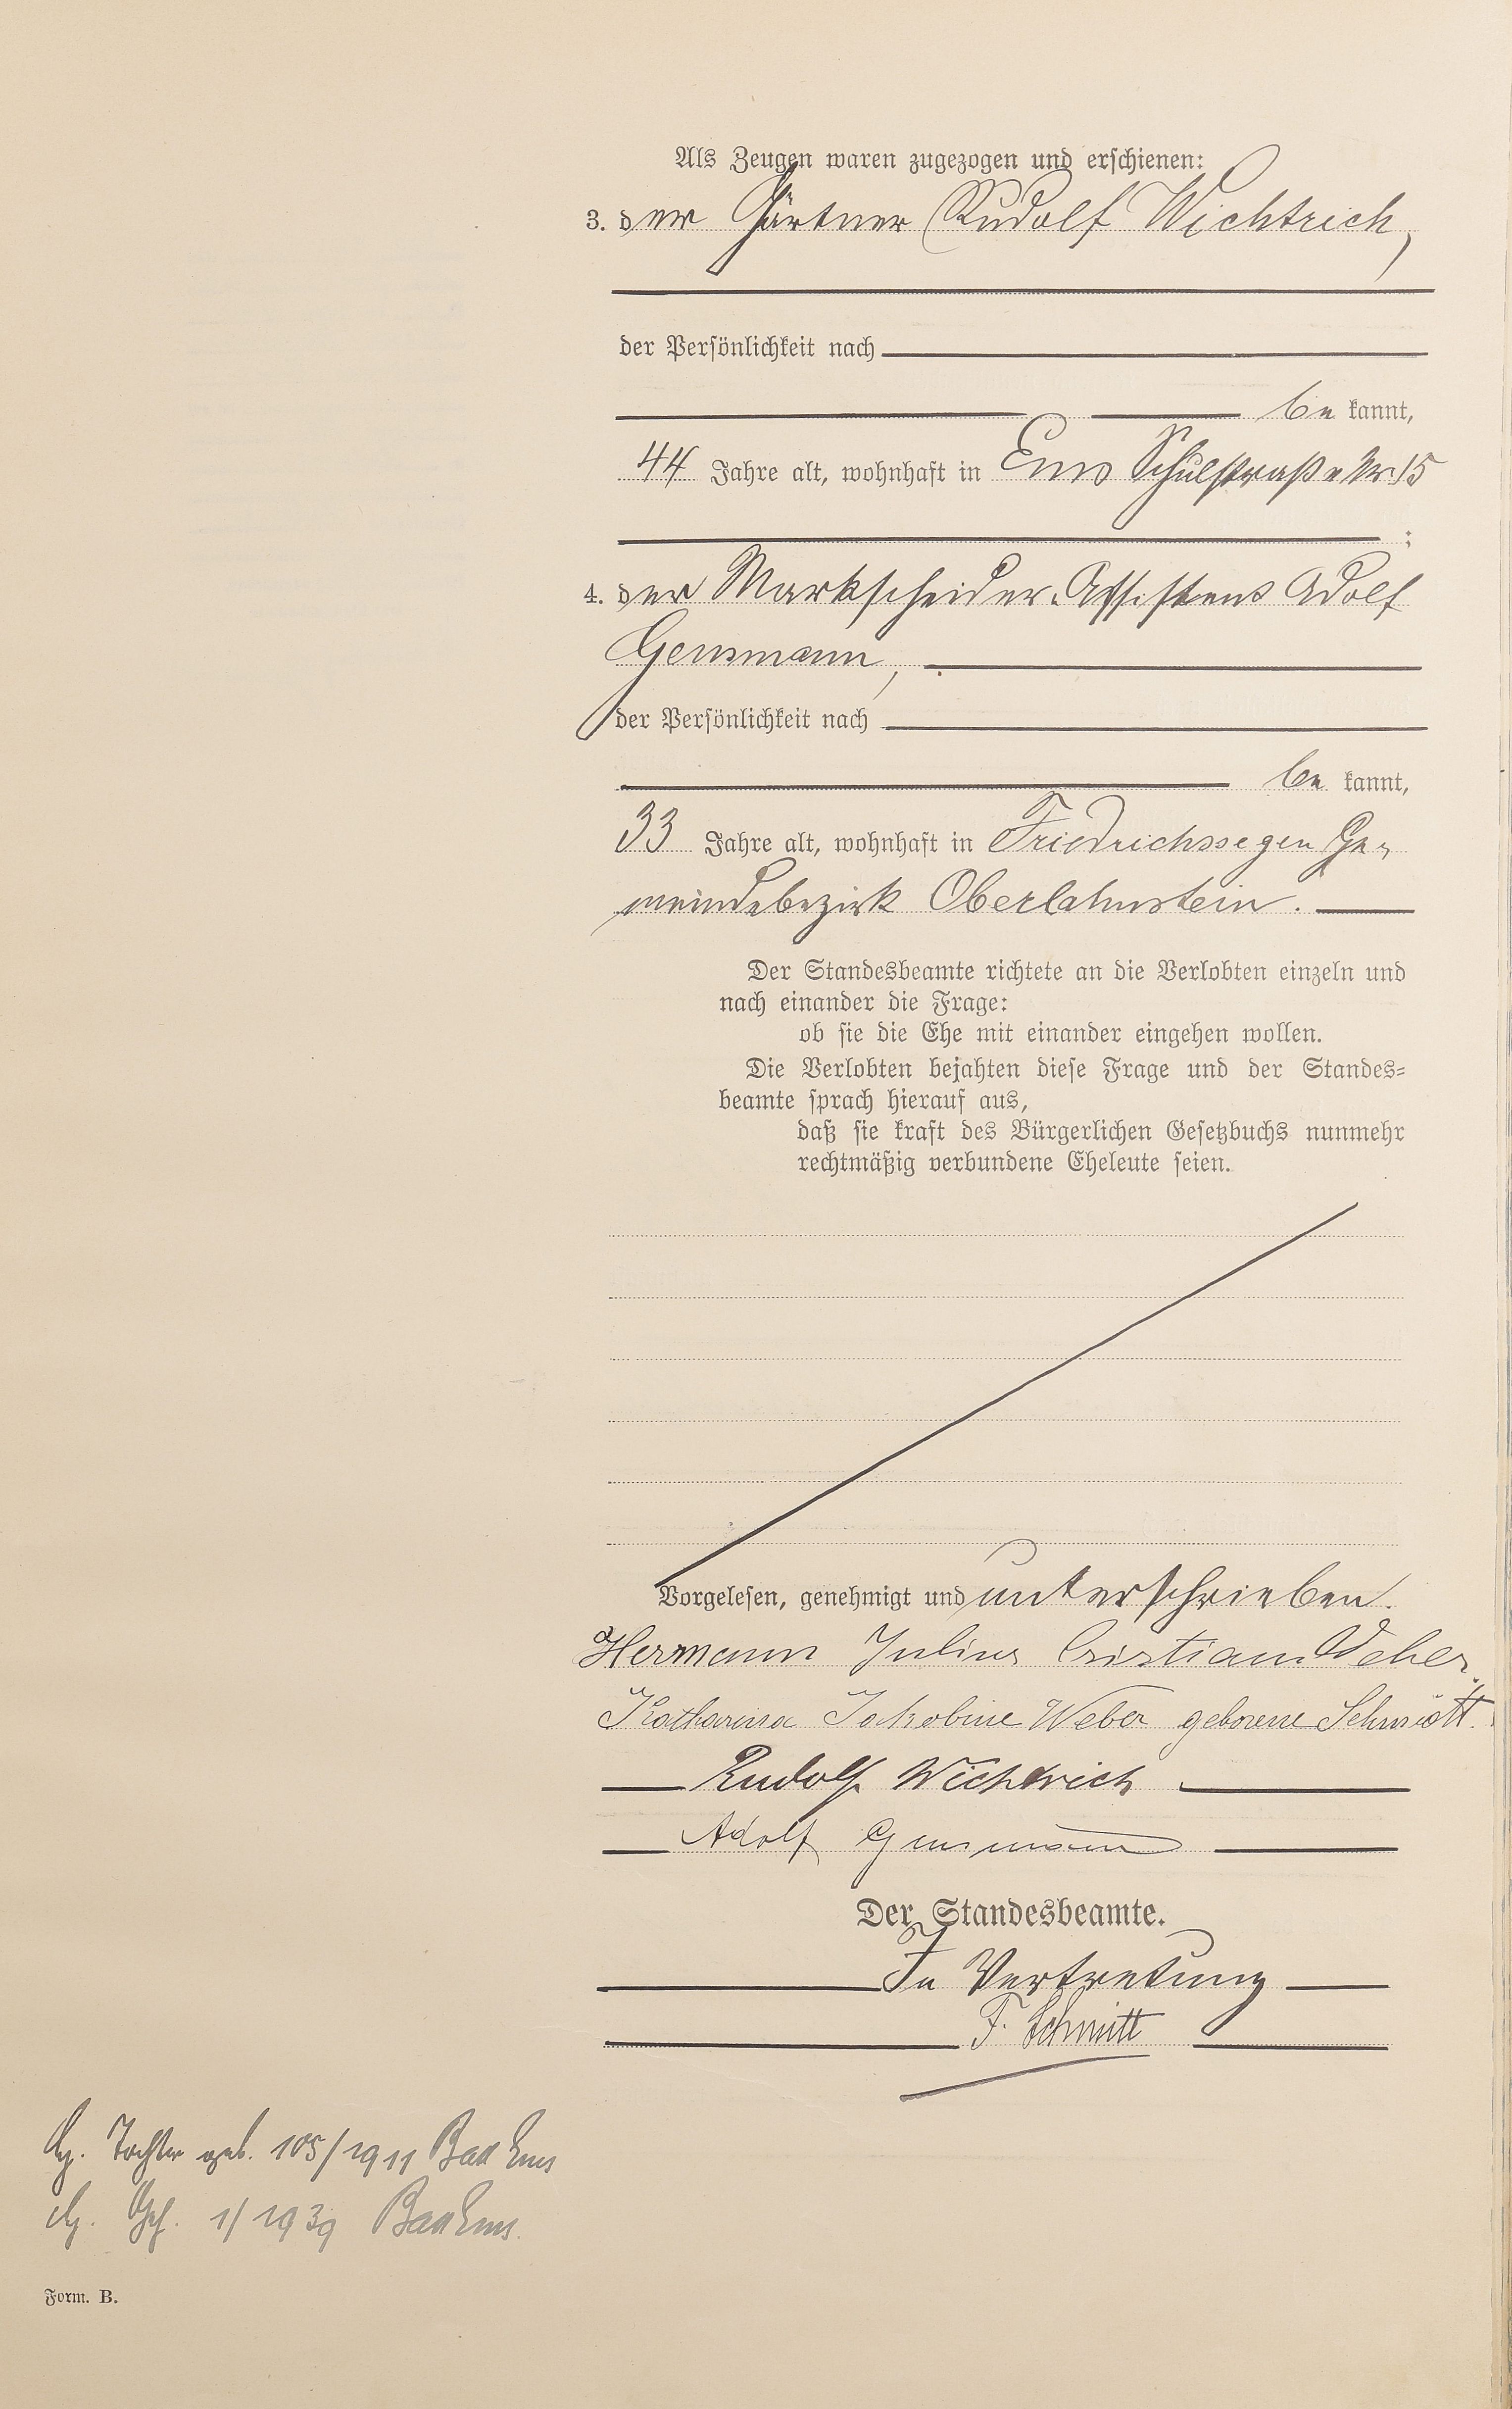 Als Zeugen waren zugezogen und erschienen:
3. der Gärtner Rudolf Wichtrich,
der Persönlichkeit nach
be kannt,
44 Jahre alt, wohnhaft in Ems Schulstraße Nr. 15
;
4. der Markscheider-Assistent Adolf
Gensmann,
der Persönlichkeit nach
be kannt,
33 Jahre alt, wohnhaft in Friedrichssegen Ge-
meindebezirk Oberlahnstein.
Der Standesbeamte richtete an die Verlobten einzeln und
nach einander die Frage:
ob sie die Ehe mit einander eingehen wollen.
Die Verlobten bejahten diese Frage und der Standes-
beamte sprach hierauf aus,
daß sie kraft des Bürgerlichen Gesetzbuchs nunmehr
rechtmäßig verbundene Eheleute seien.
Vorgelesen, genehmigt und unterschrieben.
Hermann Julius Cristian Weber.
Katharina Jakobine Weber geborene Schmidt.
Rudolf Wichtrich
Adolf Gensmann
Der Standesbeamte.
In Vertretung
F. Schmitt
Tochter geb. 105/1911 Bad Ems
1/1939 Bad Ems.
Form. B.